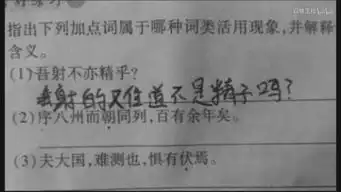 指出下列加点词属于哪种词类活用现象,并解释
含义。
(1)吾射不亦精乎?
我射的难道不是精子吗?
(2)序八州而朝同列,百有余年矣。
(3)夫大国,难测也,惧有伏焉。